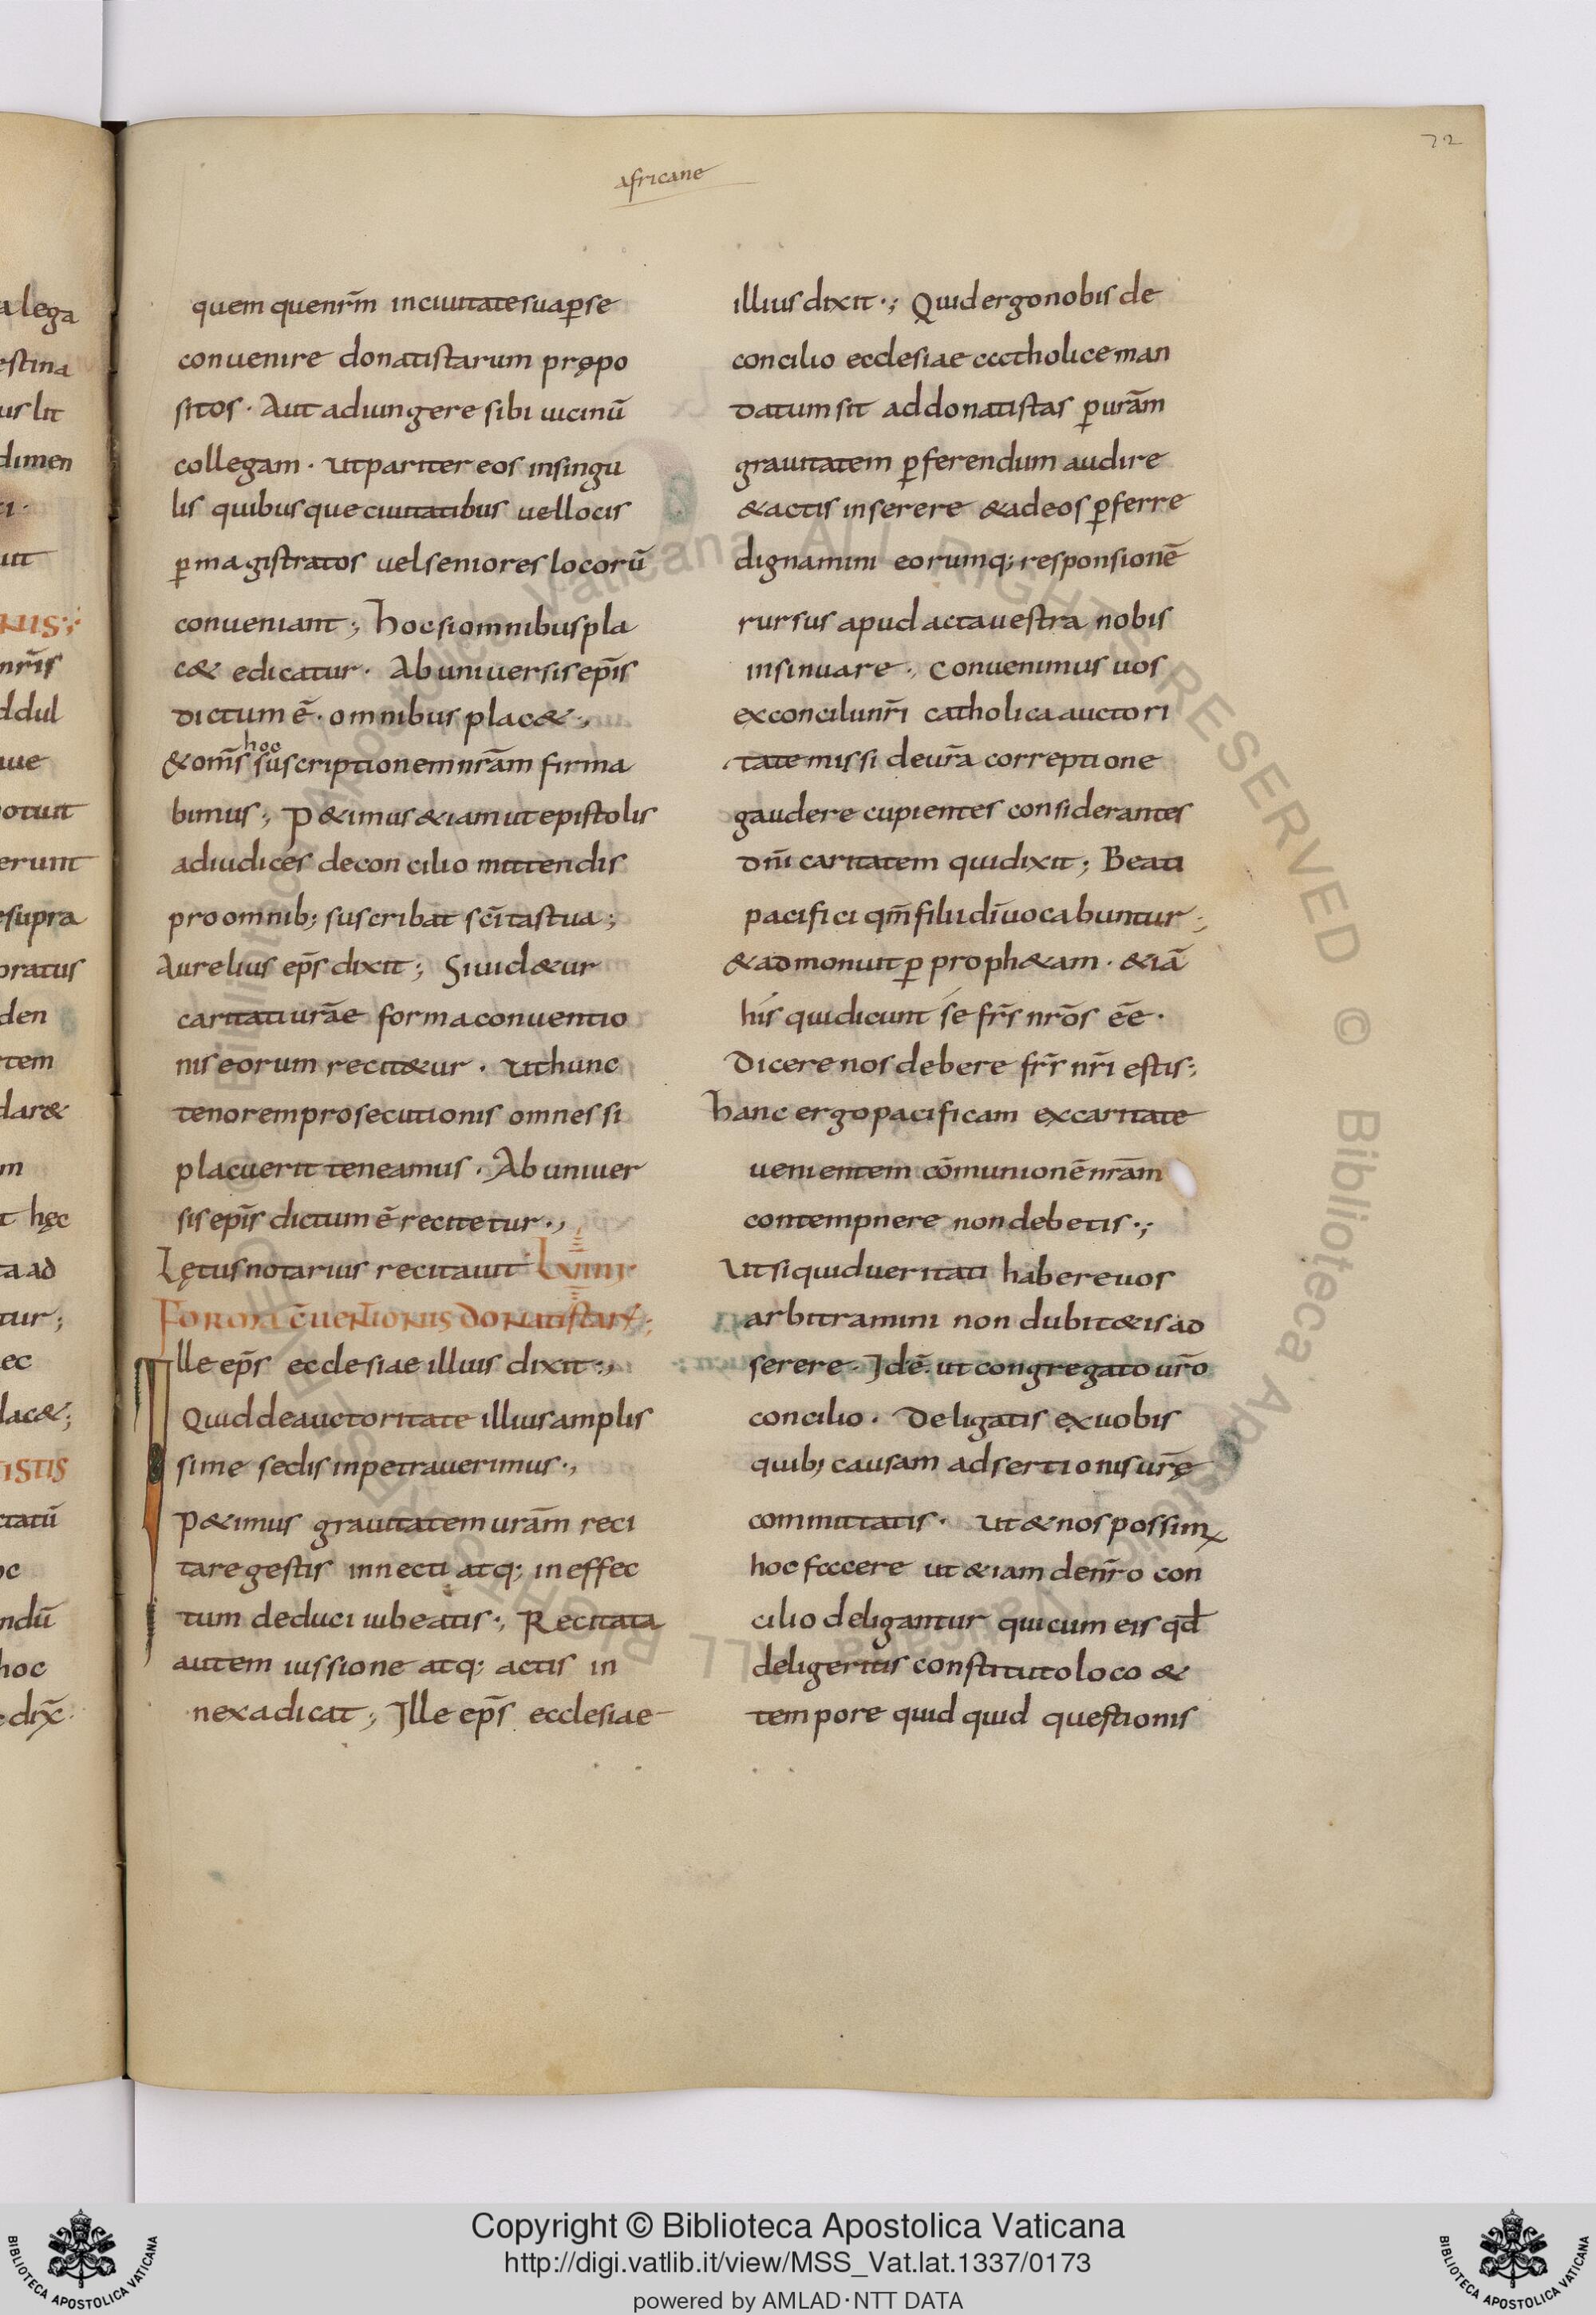 72
africane
quem quenr̄m inciuitatesuap̱se
conuenire donatistarum prępo
sitos · Aut adiungere sibi uicinū
collegam · utpariter eos insingu
lis quibusque ciuitatibus uellocis
p̱magistratos uelseniores locorū
conueniant ; hocsiomnibuspla
c& edicatur · Abuniuersisep̄is
dictum ē · omnibus plac& ·,
&om̄s hoc suscriptionemnr̄am firma
bimus ; P&imus &iamutepistolis
adiudices deconcilio mittendis
proomnib; suscribat sc̄itastua ;
Aurelius ep̄s dixit ; Siuid&ur
caritatiur̄ae formaconuentio
niseorum recit&ur · uthunc
tenoremprosecutionis omnessi
placuerit teneamus · Abuniuer
sisep̄is dictum ē recitetur ·,
Lętusnotarius recitauit · Lxviiii·
Forma c̄uentionis donatistarꝝ ;
Ille ep̄s ecclesiae illius dixit ·,
Quiddeauctoritate illiusamplis
sime sedis inpetrauerimus ·,
P&imus grauitatemur̄am reci
tare gestis innecti atq; ineffec
tum deduci iubeatis ·; Recitata
autem iussione atq; actis in
nexadicat ; Ille ep̄s ecclesiae
illiusdixit ·; Quidergonobisde
concilio ecclesiae ccctholiceman
datumsit addonatistas p̱ur̄am
grauitatem p̱ferendum audire
&actis inserere &adeosp̱ferre
dignamini eorumq; responsionē
rursus apud actauestra nobis
insinuare ·, Conuenimus uos
exconciliinr̄i catholicaauctori
tatemissi deur̄a correptione
gaudere cupientes considerantes
dn̄i caritatem quidixit ; Beati
pacifici qm̄filiidīuocabuntur ;
&admonuit p̱ proph&am · &iā
his quidicunt se fr̄s nr̄os eē ·
Dicerenosdebere fr̄r nr̄i estis ;
hanc ergopacificam excaritate
uenientem cōmunionēnr̄am
contempnere nondebetis ·;
Utsiquidueritati habereuos
arbitramini non dubit&isad
serere · Idē · ut congregato ur̄o
concilio · Deligatis exuobis
quib; causam adsertionisur̄ę
committatis · ut&nospossimꝰ
hoc fcccere ut&iam denr̄o con
cilio deligantur quicum eis qd̄
deligeritis constitutoloco &
tempore quid quid questionis
alega
estina
dimen
ut
nr̄is
ddul
potuit
erunt
esupra
oratus
den
rtem
dar&
m
t hęc
taad
tur ;
ec
lac& ;
tistis
ctatū
oc
ndū
hoc
edix̄ ·
© Biblioteca Apostolica Vaticana ALL RIGHTS RESERVED
Copyright © Biblioteca Apostolica Vaticana
http://digi.vatlib.it/view/MSS_Vat.lat.1337/0173
powered by AMLAD·NTT DATA
BIBLIOTECA APOSTOLICA VATICANA
BIBLIOTECA APOSTOLICA VATICANA